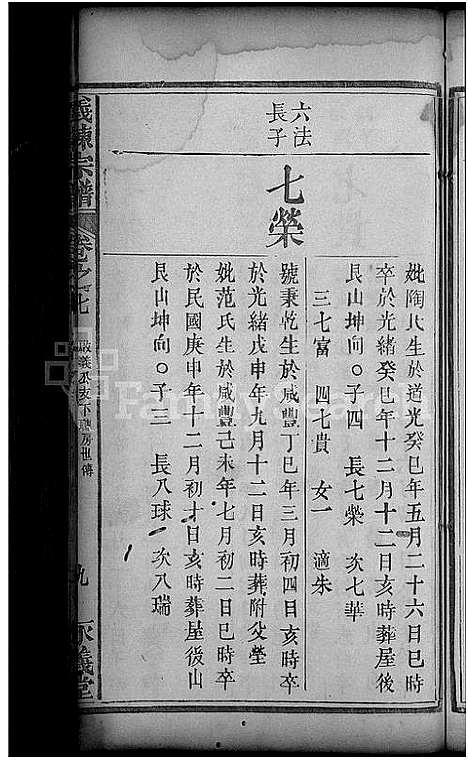 妣陶氏生於道光癸巳年五月二十六日巳時
卒於光緒癸巳年十二月十二日亥時葬屋後
艮山坤向○子四 長七榮 次七華
三七富 四七貴 女一 適朱
六法
長子
七榮
號秉乾生於咸豐丁巳年三月初四日亥時卒
於光緒戊申年九月十二日亥時葬附父塋
妣范氏生於咸豐己未年七月初二日巳時卒
於民國庚申年十二月初十日亥時葬屋後山
艮山坤向○子三 長八球 次八瑞
義陳宗譜
卷之七
啟義公支下
房世傳
九
義堂
FamilySearch